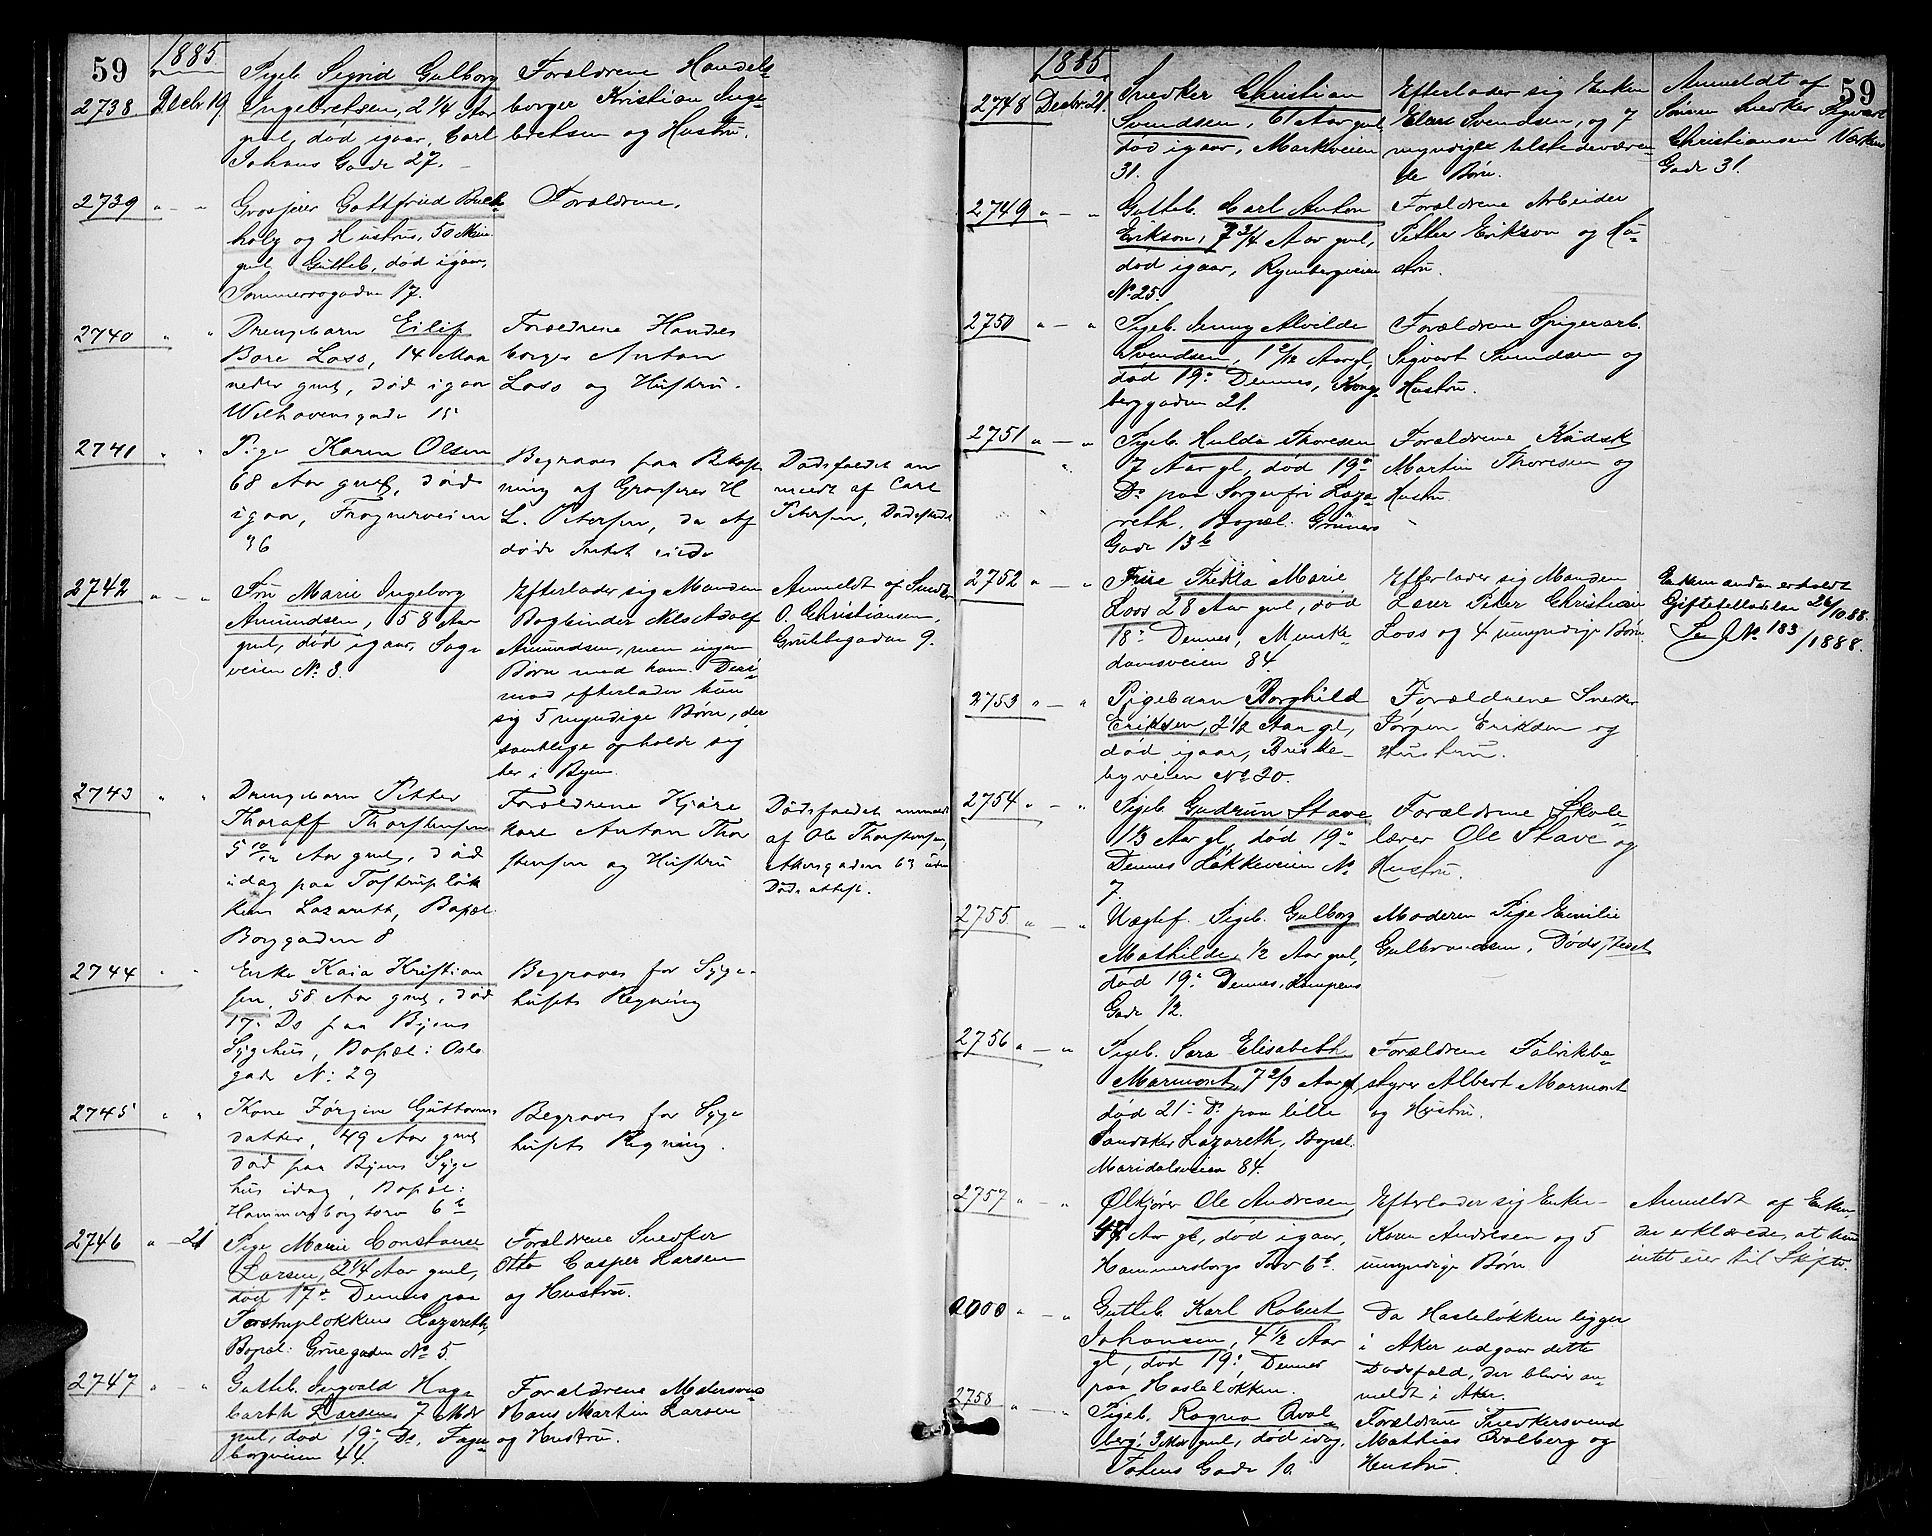 59
1885
2738. Decbr 19.
Pigeb. Sigrid Gulborg
Ingebretsen, 2 1/4 Aar
gml, død igaar, Carl
Johans Gade 27.
Forældrene Handels-
borger Kristian Inge-
bretsen og Hustru.
2739 " — "
Grosserer Gottfried Buch-
holz og Hustrus, 50 Min.
gml. Gutteb., død igaar,
Sommerrogaden 17.
Forældrene.
2740 " "
Drengebarn Eilif
Bore Loss, 14 Maa
neder gml, død igaar
Welhavensgade 15
Forældrene Handels
borger Anton
Loss og Hustru.
2741 " "
Pige Karen Olsen
68 Aar gml, død
igaar, Frognerveien
36
Begraves paa Bekost
ning af Grosserer H
L. Petersen, da Af
døde Intet eiede
Dødsfaldet an
meldt af Carl
Petersen, Dødsstedet
2742 " — "
Fru Marie Ingeborg
Amundsen, 58 Aar
gml, død igaar, Sage
veien No 3.
Efterlader sig Manden
Bogbinder Nils Adolf
Amundsen, men ingen
Børn med ham. Deri-
mod efterlader hun
sig 5 myndige Børn, der
samtlige opholde sig
her i Byen.
Anmeldt af Snedker
O. Christiansen,
Grubbegaden 9.
2743 " "
Drengebarn Petter
Thoralf Thorstensen
5 10/12 Aar gml, død
idag paa Toftrupløk
kens Lazareth, Bopæl:
Borggaden 8
Forældrene Kjøre
karl Anton Thor
stensen og Hustru
Dødsfaldet anmeldt
af Ole Thorstensen,
Akersgaden 63 uden
Døds attest.
2744 " "
Enke Kaia Kristian
sen, 58 Aar gml, død
17: Ds paa Byens
Sygehus, Bopæl: Oslo
gade No 29
Begraves for Syge-
husets Regning
2745 " "
Kone Jørgine Guttorms
datter, 49 Aar gml
død paa Byens Syge
hus idag, Bopæl:
Hammersborgtorv 6b
Begraves for Syge
husets Regning.
2746 " — 21
Pige Marie Constance
Larsen, 2 1/4 Aar gml,
død 17de Dennes paa
Tostruplokkens Lazareth,
Bopæl: Gruegaden No 5.
Forældrene Snedker
Otto Casper Larsen
og Hustru.
2747 " — "
Gutteb. Ingvald Hage
barth Larsen, 7 Mdr
gml, død 19: Ds, Fager-
borgveien 44.
Forældrene Medersvend
Hans Martin Larsen
og Hustru.
1885
59
2748 Decbr 21.
Snedker Christian
Svendsen, 61 Aar gml
død igaar, Markveien
31.
Efterlader sig Enken
Elen Svendsen, og 7
myndige tilstedeværen-
de Børn.
Anmeldt af
Sønnen Snedker Sigvart
Christiansen Værkens
Gade 31.
2749 " — "
Gutteb. Carl Anton
Erikson, 7 3/4 Aar gml,
død igaar, Ryenbergveien
No 25.
Forældrene Arbeider
Petter Erikson og Hu-
stru.
2750 " — "
Pigeb. Jenny Alvilde
Svendsen, 1 2/12 Aar gl,
død 19: Dennes, Kongs-
berggaden 21.
Forældrene Spigerarb.
Sigvart Svendsen og
Hustru.
2751 " — "
Pigeb. Hulda Thoresen
7 Aar gl, død 19de
Ds paa Sorgenfri Laza-
reth. Bopæl. Grüners
Gade 13b
Forældrene Kudsk
Martin Thoresen og
Hustru.
2752 " — "
Frue Thekla Marie
Loss 28 Aar gml, død
18: Dennes, Munke-
damsveien 84.
Efterlader sig Manden
Læser Peter Christian
Loss og 4 umyndige Børn.
Enkemanden erholdt
Giftetilladelse 26/10 88.
Se JNo 183/1888.
2753 " — "
Pigebarn Borghild
Eriksen, 2 1/2 Aar gl,
død igaar, Briske-
byveien No 20.
Forældrene Snedker
Jørgen Eriksen og
Hustru.
2754 " — "
Pigeb. Gudrun Stave
1 1/3 Aar gl, død 19de
Dennes Løkkeveien No
7.
Forældrene Skole-
lærer Ole Stave og
Hustru.
2755 " — "
Uægtef. Pigeb. Gulborg
Mathilde, 1/2 Aar gml,
død 19: Dennes, Kampens
Gade 12.
Moderen Pige Emilie
Gulbrandsen, Dødsstedet
2756 " — "
Pigeb. Sara Elisabeth
Marmont, 7 2/3 Aar gl
død 21: Ds paa lille
Sandaker Lazareth, Bopæl.
Maridalsveien 84.
Forældrene Fabrikbe-
styrer Albert Marmont
og Hustru.
2757 " — "
Ølkjører Ole Andresen,
47 Aar gl, død igaar,
Hammersborgs Torv 6b.
Efterlader sig Enken
Karen Andresen og 5
umyndige Børn.
Anmeldt af Enken,
der erklærede, at hun
intet eier til Skifte.
0000 " — "
Gutteb. Karl Robert
Johansen, 4 1/2 Aar
gl, død 19: Dennes
paa Hasleløkken.
Da Hasleløkken ligger
i Aker udgaar dette
Dødsfald, der bliver an-
meldt i Aker.
2758 " — "
Pigeb. Ragna Qval-
berg, 3 Mdr gml, død idag,
Tøiens Gade 10.
Forældrene Snedkersvend
Mathias Qvalberg og
Hustru.